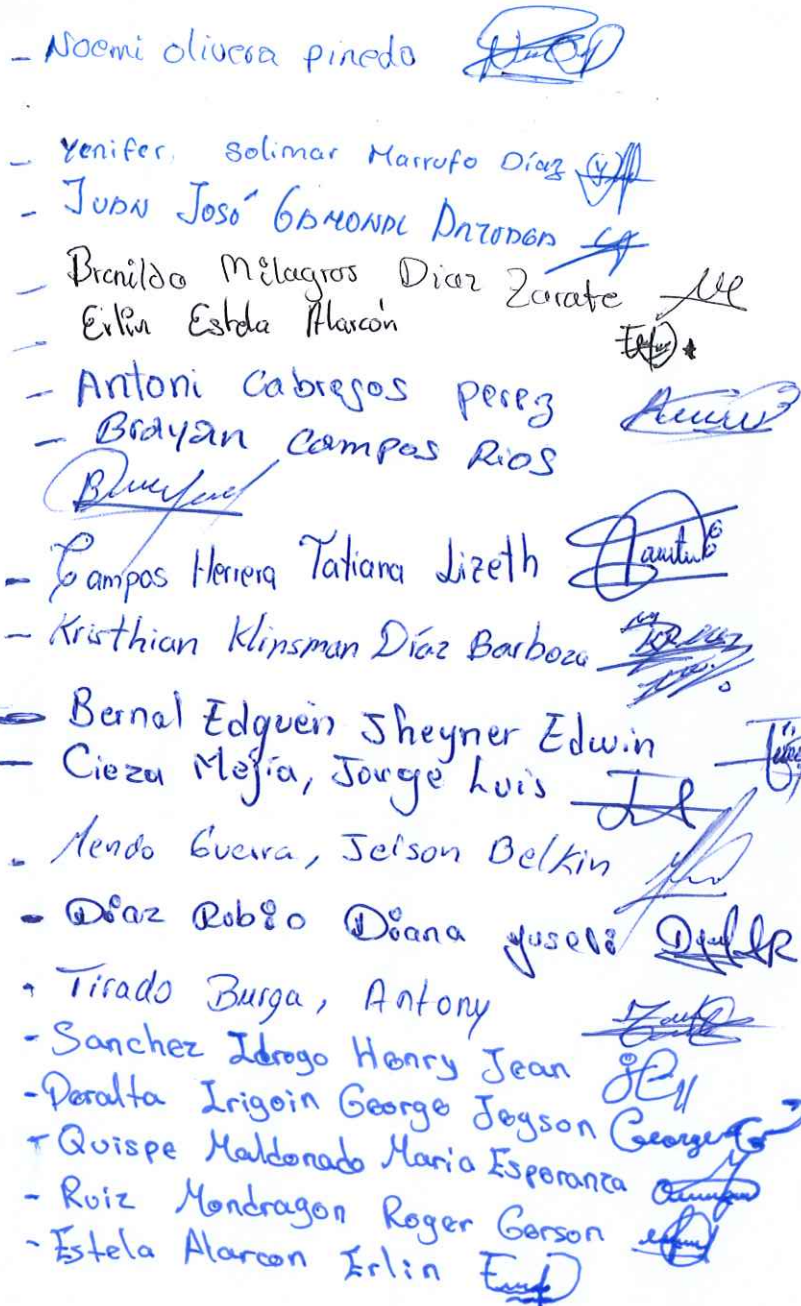 - Noemi olivera pinedo
- Yenifer. Solimar Marrufo Díaz
- JUAN José GAMONAL
- Branilda Milagros Diaz Zarate
- Erlin Estela Alarcón
- Antoni Cabrejos perez
- Brayan Campos Rios
- Campos Herrera Tatiana Lizeth
- Kristhian Klinsman Díaz Barboza
- Bernal Edquén Jheyner Edwin
- Cieza Mejía, Jorge Luis
- Mendo Guerra, Jeison Belkin
- Diaz Rubio Diana yuseli
- Tirado Burga, Antony
- Sanchez Idrogo Henry Jean
- Peralta Irigoin George Jegson George
- Quispe Maldonado Maria Esperanza
- Ruiz Mondragon Roger Gerson
- Estela Alarcon Erlin